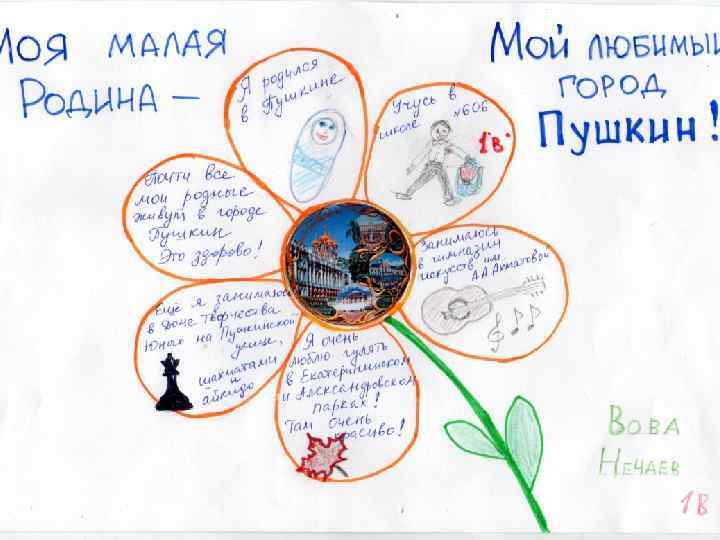 Моя малая
Родина —
Мой любимый
город
Пушкин!
Я родился
в Пушкине
Учусь в
школе №606
1"В"
Почти все
мои родные
живут в городе
Пушкин
Это здорово!
Занимаюсь
в гимназии
искусств им
А.А.Ахматовой
Ещё я занимаюсь
в Доме творчества
Юных на Пушкинской
улице,
шахматами
и
айкидо
Я очень
люблю гулять
в Екатерининском
и Александровском
парках!
Там очень
красиво!
Вова
Нечаев
1 В